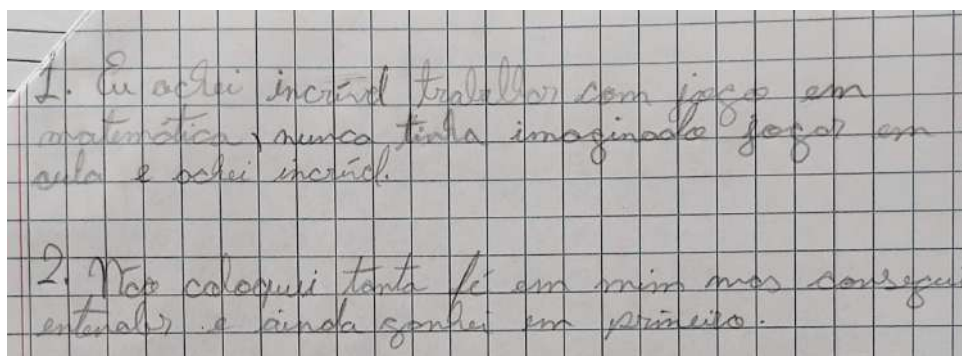 1. Eu achei incrível trabalhar com jogo em
matemática, nunca tinha imaginado jogar em
aula e achei incrível.
2. Não coloquei tanta fé em mim mas consegui
entender e ainda ganhei em primeiro.